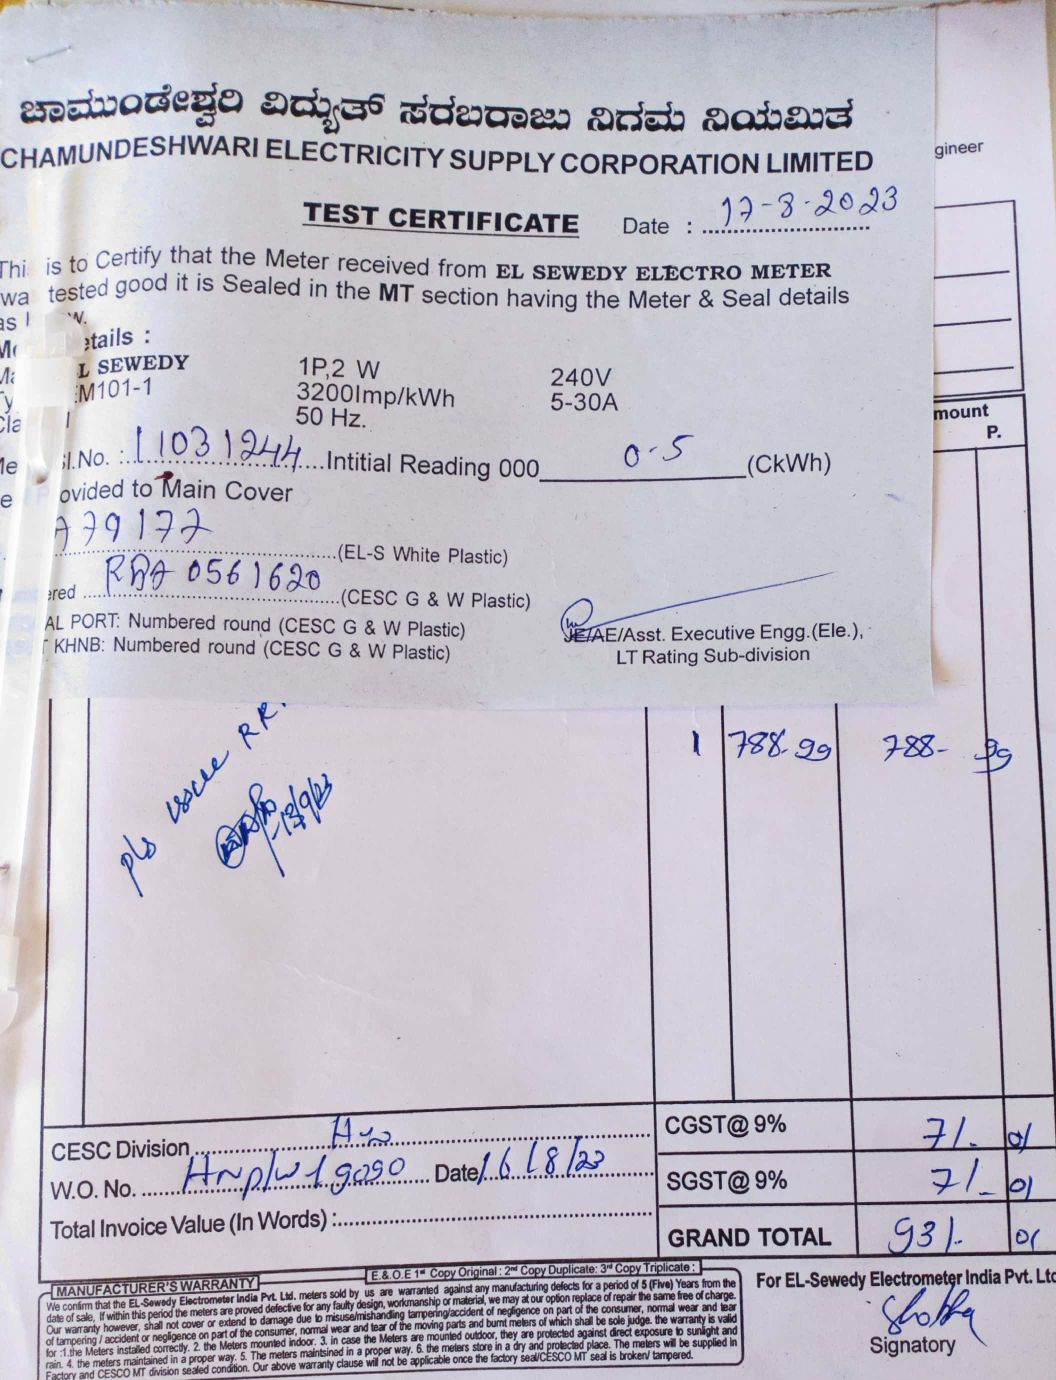 ಚಾಮುಂಡೇಶ್ವರಿ ವಿದ್ಯುತ್ ಸರಬರಾಜು ನಿಗಮ ನಿಯಮಿತ
CHAMUNDESHWARI ELECTRICITY SUPPLY CORPORATION LIMITED
gineer
TEST CERTIFICATE Date : 17-8-2023
Thi is to Certify that the Meter received from EL SEWEDY ELECTRO METER
wa tested good it is Sealed in the MT section having the Meter & Seal details
as l w.
etails :
L SEWEDY 1P,2 W 240V
M101-1 3200Imp/kWh 5-30A
50 Hz.
mount
P.
l.No. : 11031244 Intitial Reading 000 0.5 (CkWh)
ovided to Main Cover
A79177 (EL-S White Plastic)
ered RBA 0561620 (CESC G & W Plastic)
AL PORT: Numbered round (CESC G & W Plastic)
KHNB: Numbered round (CESC G & W Plastic)
JE/AE/Asst. Executive Engg.(Ele.),
LT Rating Sub-division
1 788-99 788- 99
pls issue RR.
CESC Division
W.O. No. Date 16/8/23
Total Invoice Value (In Words) :
CGST@ 9% 71. 01
SGST@ 9% 71- 01
GRAND TOTAL 931. 01
E.& O.E 1st Copy Original : 2nd Copy Duplicate: 3rd Copy Triplicate :
MANUFACTURER'S WARRANTY
We confirm that the EL-Sewedy Electrometer India Pvt. Ltd. meters sold by us are warranted against any manufacturing defects for a period of 5 (Five) Years from the
date of sale, If within this period the meters are proved defective for any faulty design, workmanship or material, we may at our option replace of repair the same free of charge.
Our warranty however, shall not cover or extend to damage due to misuse/mishandling tampering/accident of negligence on part of the consumer, normal wear and tear
of tampering / accident or negligence on part of the consumer, normal wear and tear of the moving parts and burnt meters of which shall be sole judge. the warranty is valid
for :1.the Meters installed correctly. 2. the Meters mounted indoor. 3. in case the Meters are mounted outdoor, they are protected against direct exposure to sunlight and
rain. 4. the meters maintained in a proper way. 5. The meters maintsined in a proper way. 6. the meters store in a dry and protected place. The meters will be supplied in
Factory and CESCO MT division sealed condition. Our above warranty clause will not be applicable once the factory seal/CESCO MT seal is broken/ tampered.
For EL-Sewedy Electrometer India Pvt. Ltd
Signatory